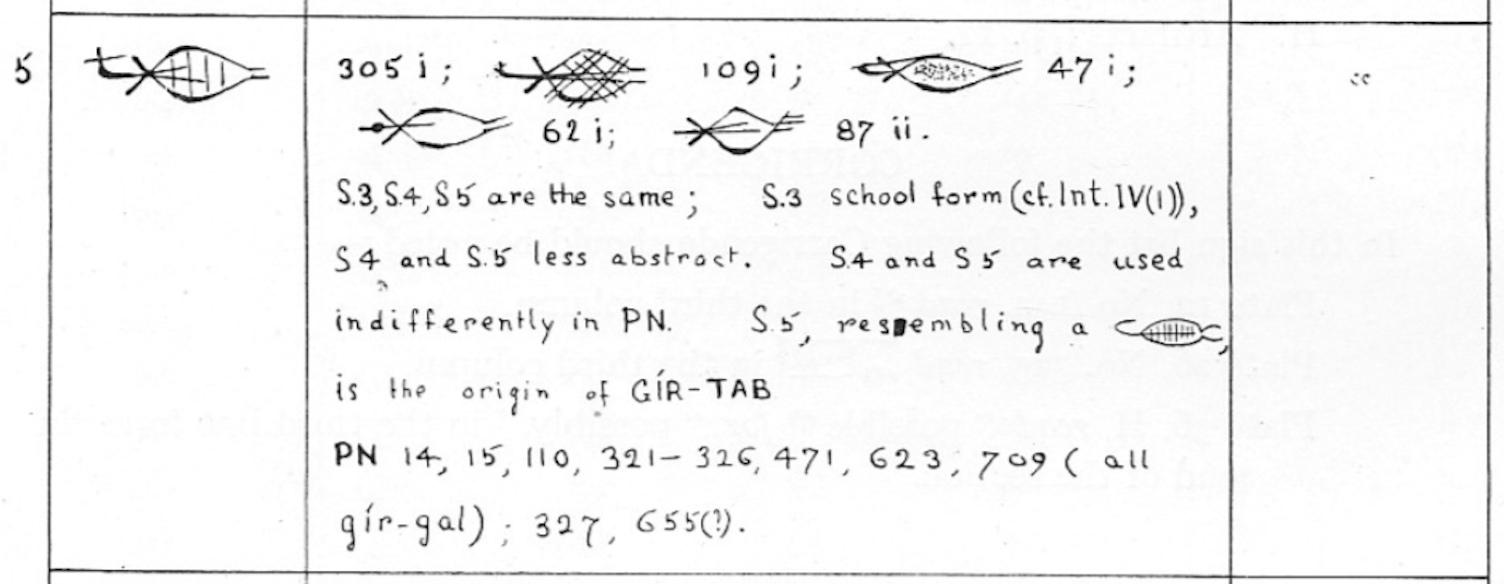 5 305 i; 109 i; 47 i; "
62 i; 87 ii.
S.3, S.4, S5 are the same; S.3 school form (cf. Int. IV(1)),
S4 and S.5 less abstract. S.4 and S5 are used
indifferently in PN. S.5, resembling a ,
is the origin of GÍR-TAB
PN 14, 15, 110, 321–326, 471, 623, 709 ( all
gír-gal); 327, 655(?).